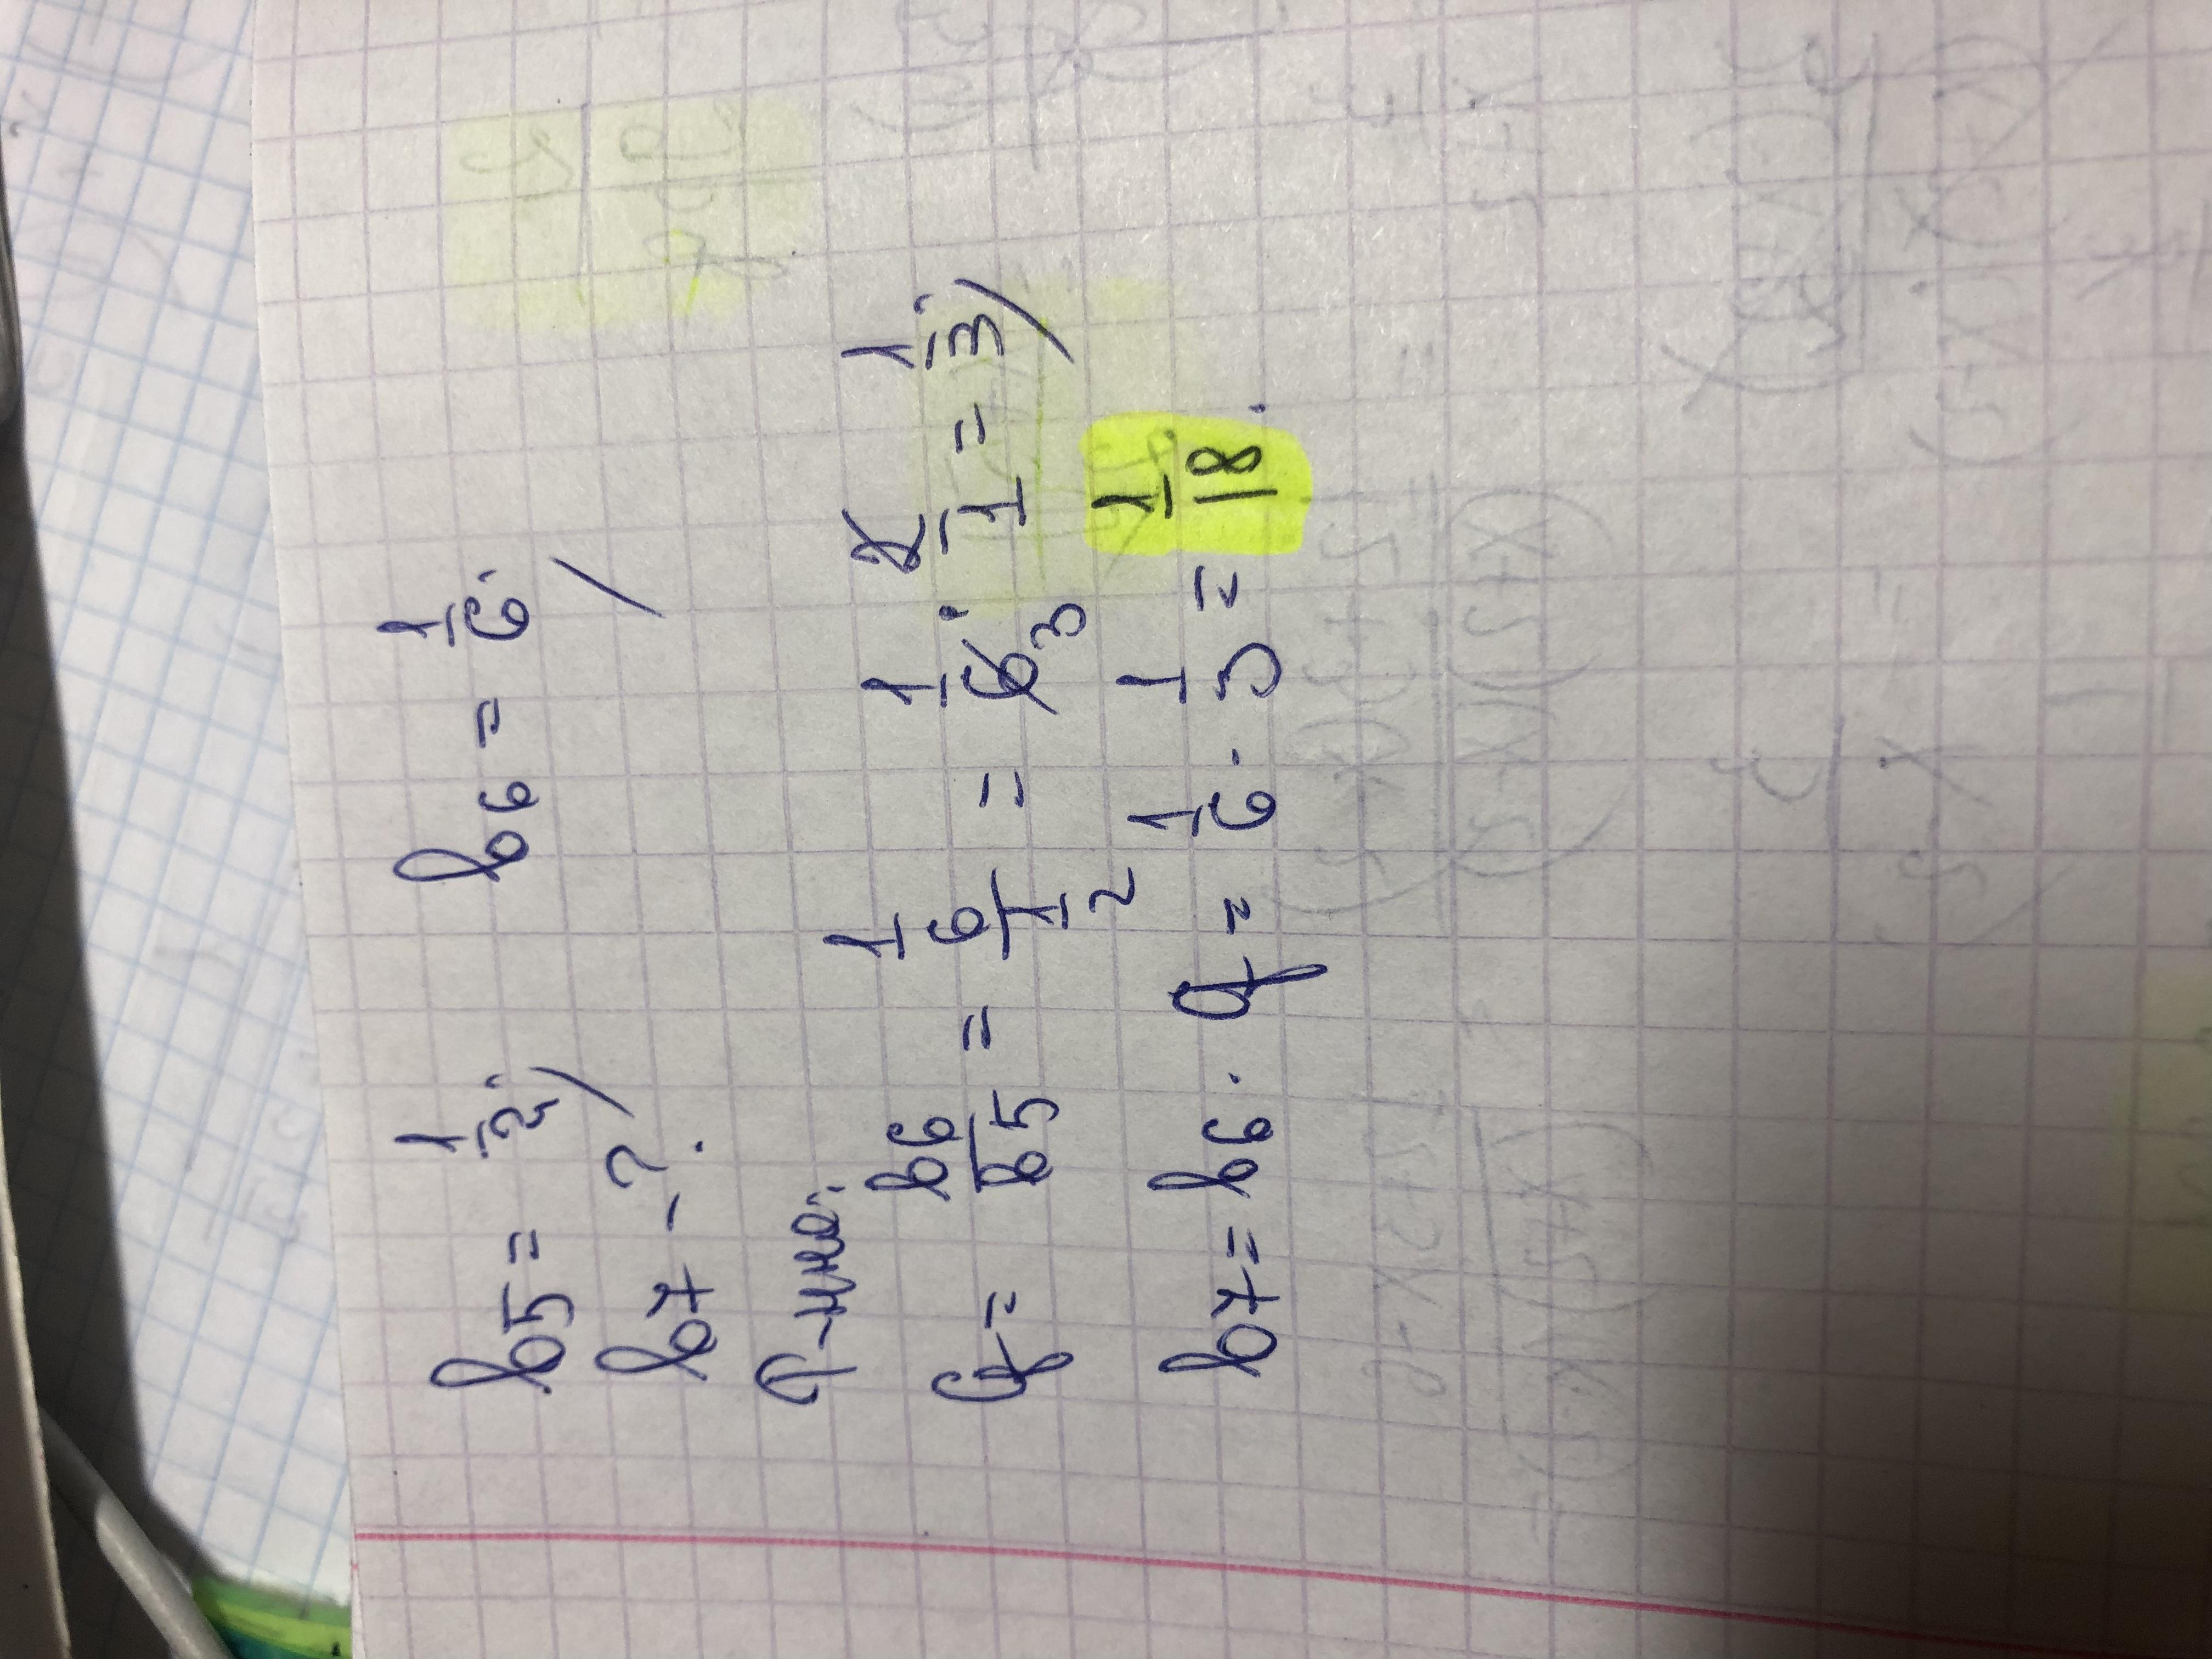 b5 = 1/2; b6 = 1/6;
b7 - ?
q = b6/b5 = 1/6 / 1/2 = 1/6 · 2/1 = 1/3;
b7 = b6 · q = 1/6 · 1/3 = 1/18.